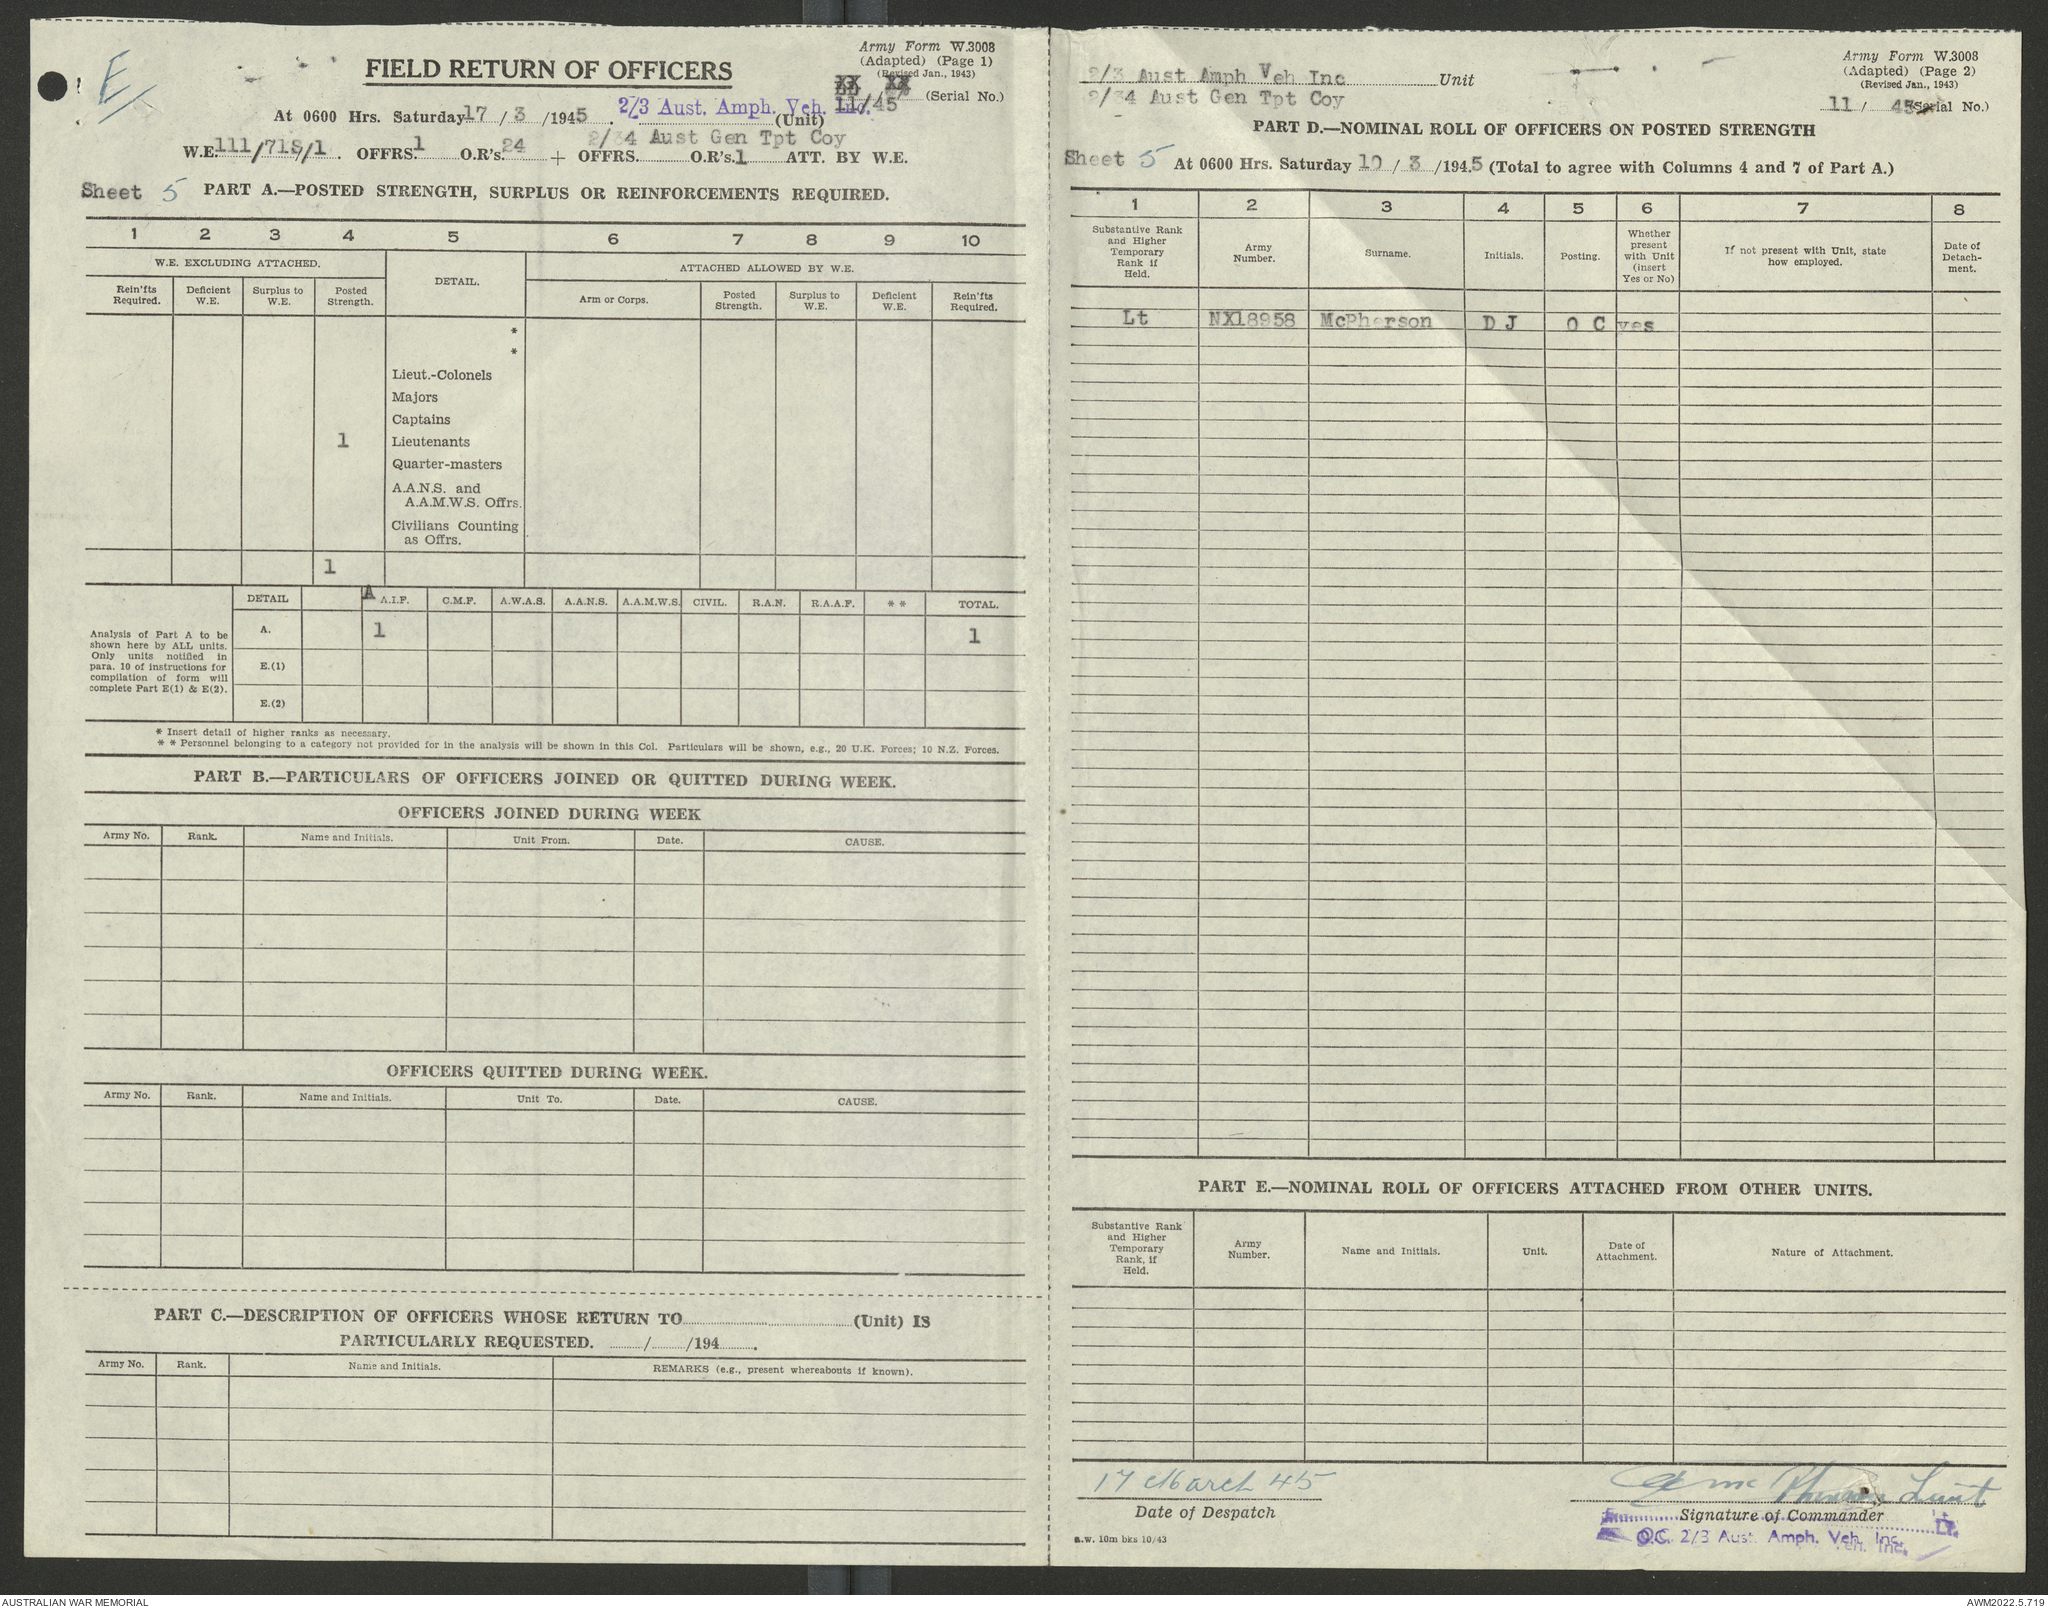 E/
Army Form W.3008
(Adapted) (Page 1)
(Revised Jan., 1943)
11/45 (Serial No.)
FIELD RETURN OF OFFICERS
At 0600 Hrs. Saturday 17 / 3 /1945. 2/3 Aust. Amph. Veh. Inc. (Unit)
2/34 Aust Gen Tpt Coy
W.E. 111/71S/1. OFFRS. 1 O.R's. 24 + OFFRS. O.R's. 1 ATT. BY W.E.
Sheet 5 PART A.—POSTED STRENGTH, SURPLUS OR REINFORCEMENTS REQUIRED.
1 2 3 4 5 6 7 8 9 10
W.E. EXCLUDING ATTACHED. DETAIL. ATTACHED ALLOWED BY W.E.
Rein'fts Required. Deficient W.E. Surplus to W.E. Posted Strength. Arm or Corps. Posted Strength. Surplus to W.E. Deficient W.E. Rein'fts Required.
*
*
Lieut.-Colonels
Majors
Captains
1 Lieutenants
Quarter-masters
A.A.N.S. and
A.A.M.W.S. Offrs.
Civilians Counting
as Offrs.
1
DETAIL A A.I.F. C.M.F. A.W.A.S. A.A.N.S. A.A.M.W.S. CIVIL. R.A.N. R.A.A.F. * * TOTAL.
Analysis of Part A to be
shown here by ALL units.
Only units notified in
para. 10 of instructions for
compilation of form will
complete Part E(1) & E(2).
A. 1 1
E.(1)
E.(2)
* Insert detail of higher ranks as necessary.
* * Personnel belonging to a category not provided for in the analysis will be shown in this Col. Particulars will be shown, e.g., 20 U.K. Forces; 10 N.Z. Forces.
PART B.—PARTICULARS OF OFFICERS JOINED OR QUITTED DURING WEEK.
OFFICERS JOINED DURING WEEK
Army No. Rank. Name and Initials. Unit From. Date. CAUSE.
OFFICERS QUITTED DURING WEEK.
Army No. Rank. Name and Initials. Unit To. Date. CAUSE.
PART C.—DESCRIPTION OF OFFICERS WHOSE RETURN TO (Unit) IS
PARTICULARLY REQUESTED. / /194 .
Army No. Rank. Name and Initials. REMARKS (e.g., present whereabouts if known).
2/3 Aust Amph Veh Inc Unit
2/34 Aust Gen Tpt Coy
Army Form W.3008
(Adapted) (Page 2)
(Revised Jan., 1943)
11 / 45 (Serial No.)
PART D.—NOMINAL ROLL OF OFFICERS ON POSTED STRENGTH
Sheet 5 At 0600 Hrs. Saturday 10 / 3 /1945 (Total to agree with Columns 4 and 7 of Part A.)
1 2 3 4 5 6 7 8
Substantive Rank and Higher Temporary Rank if Held. Army Number. Surname. Initials. Posting. Whether present with Unit (insert Yes or No) If not present with Unit, state how employed. Date of Detach-ment.
Lt NX18958 McPherson D J O C yes
PART E.—NOMINAL ROLL OF OFFICERS ATTACHED FROM OTHER UNITS.
Substantive Rank and Higher Temporary Rank, if Held. Army Number. Name and Initials. Unit. Date of Attachment. Nature of Attachment.
17 March 45
Date of Despatch
McPherson Lieut
Signature of Commander
Lt.
O.C. 2/3 Aust. Amph. Veh. Inc.
10m bks 10/43
AUSTRALIAN WAR MEMORIAL
AWM2022.5.719